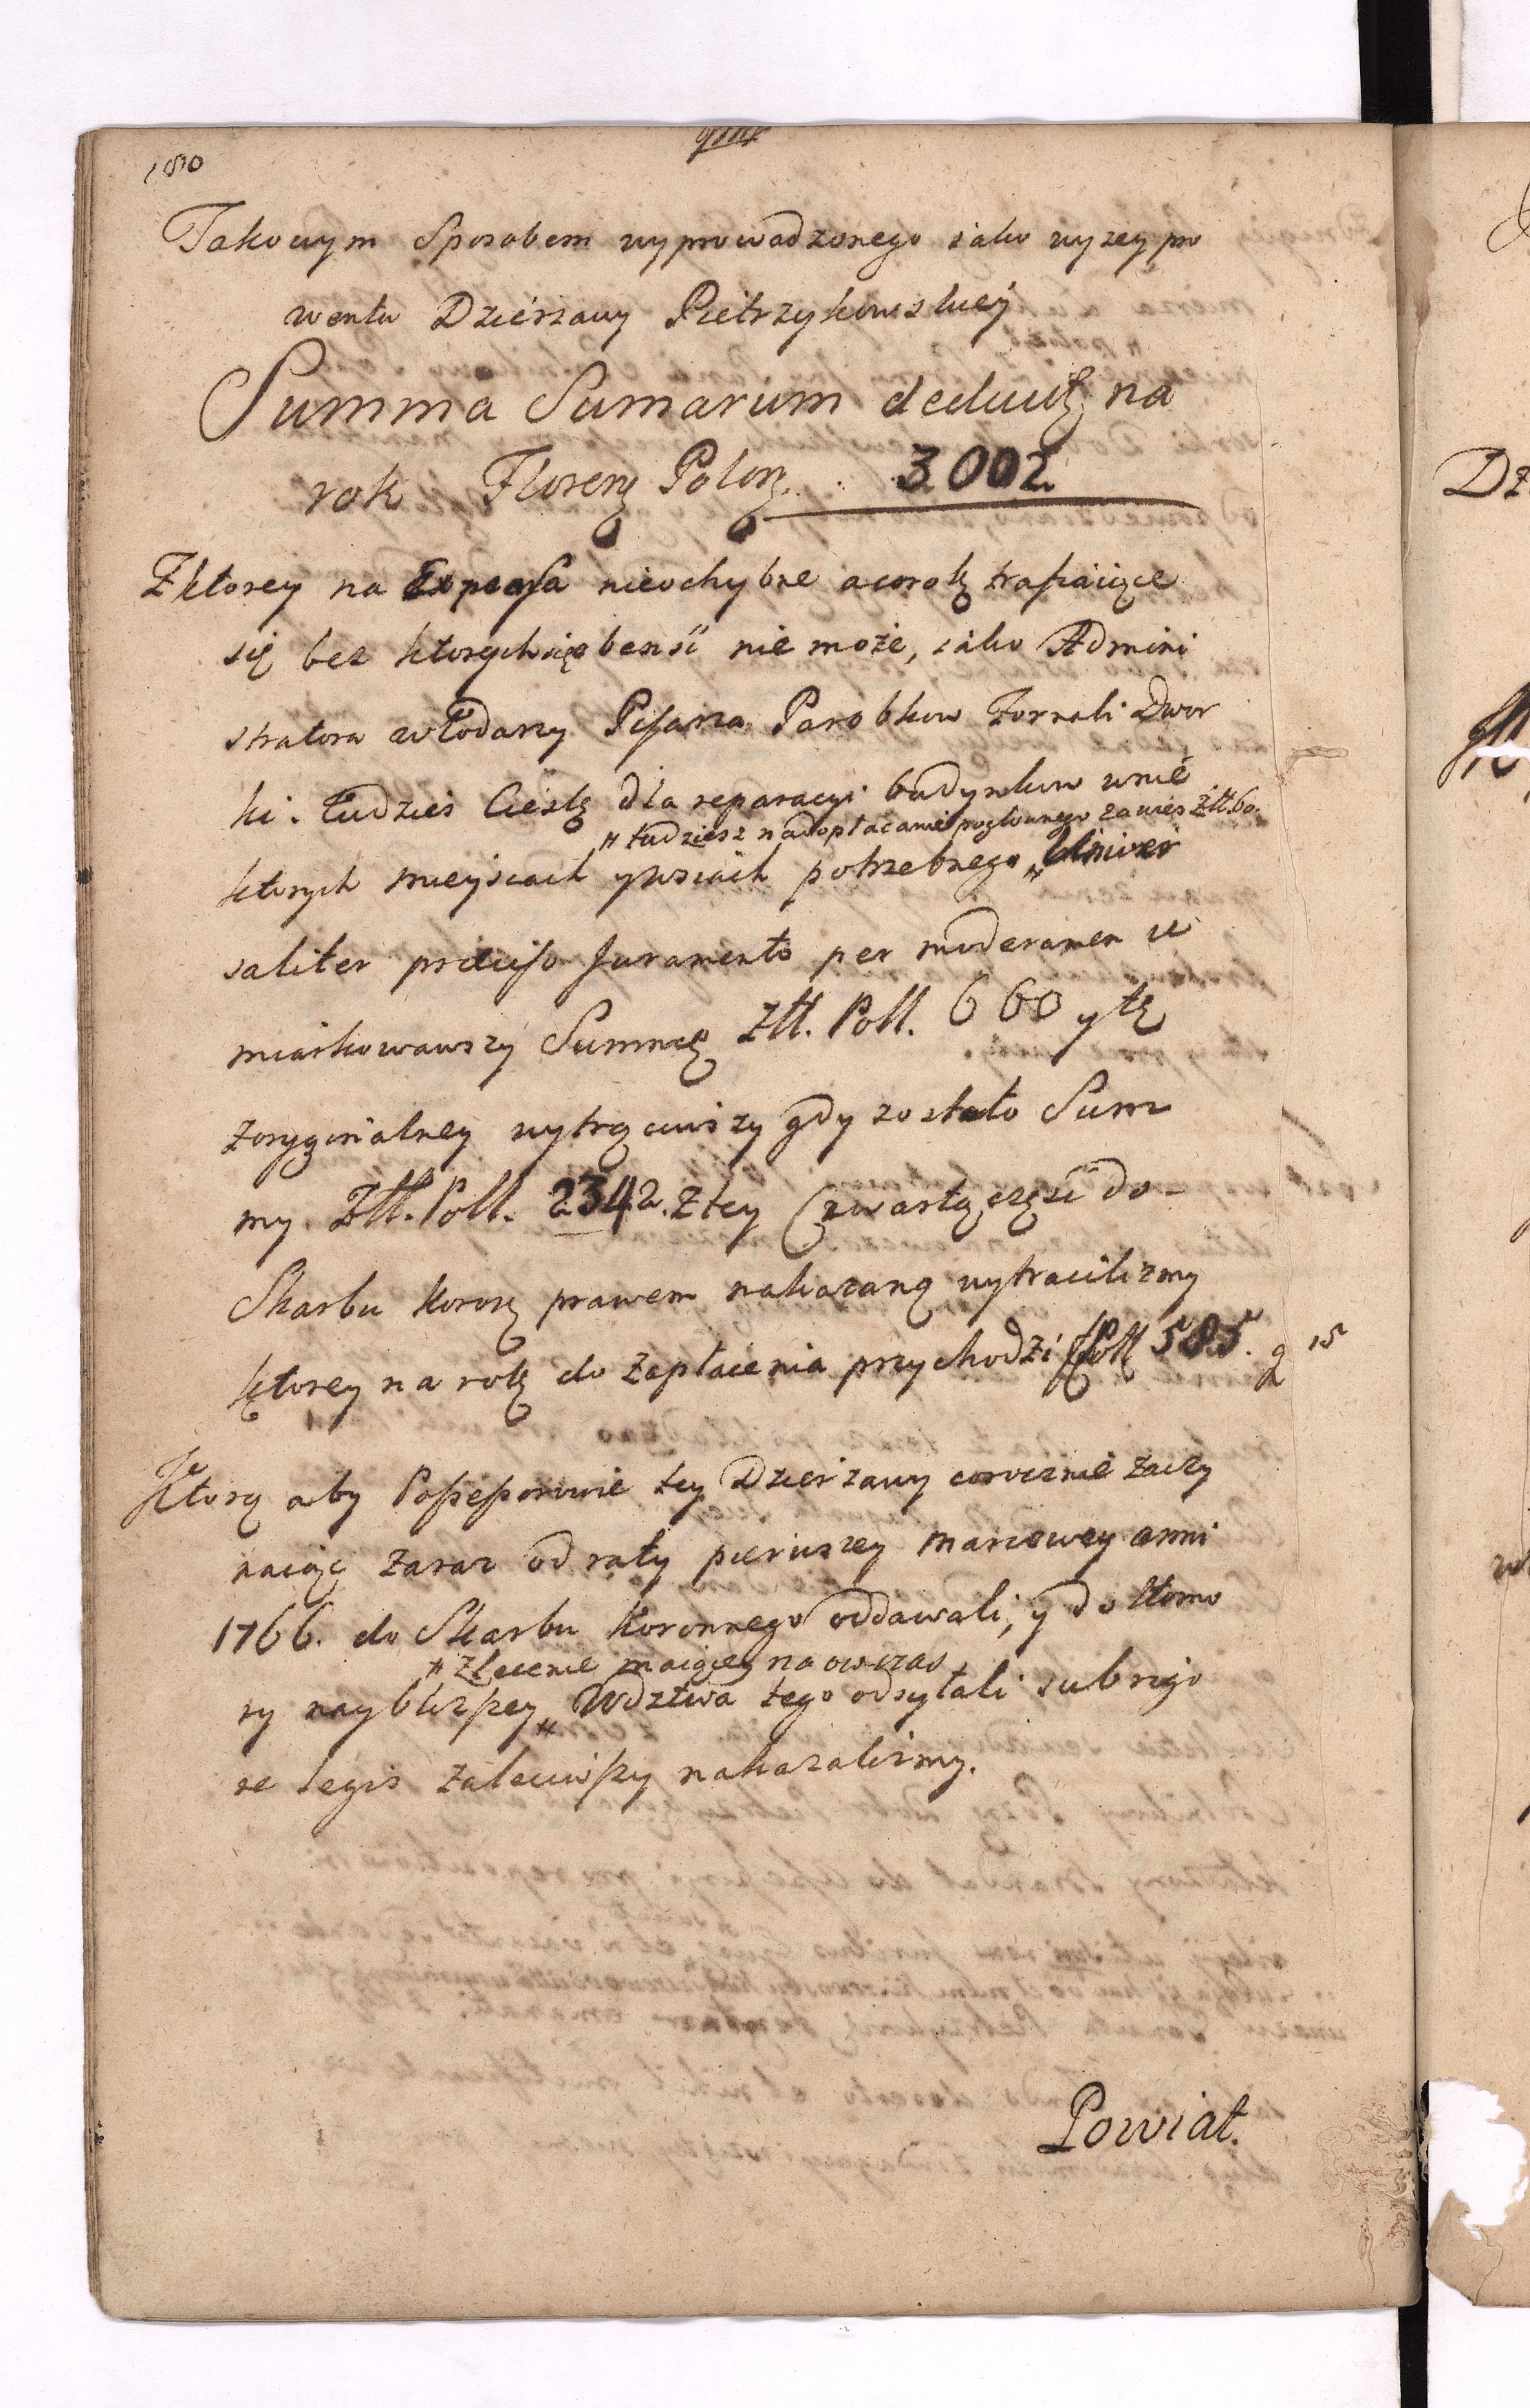 180
Takowym Sposobem wyprowadzonego iako wyzey pro
wentu Dzierzawy Pietrzykowskiey
Summa Sumarum deduct na
rok Floren Polon. 3002.
Z ktorey na Expensa nieochybne a corok trafiaiące
się bez ktorych się bendź nie może, iako Admini
stratora włodarzy Pisarza Parobkow Fornali Dwor
ki. Tudzies Cieslę dla reparacyi budynkow w nie
" tudziesz na dopłacanie pogłownego za wies Ztt. 60.
ktorych mieyscach y wsiach potrzebnego " Univer
saliter præciso Juramento per moderamen u
miarkowawszy Summę Ztt. Poll. 660 y tę
z oryginalney wytrąciwszy gdy zostało Sum
my Ztt. Poll. 2342. z tey Czwartą część do-
Skarbu Koron prawem nakazaną wytracilizmy
ktorey na rok do Zapłacenia przychodzi f Poll 585. g 15
Ktorą aby Possessorowie tey Dzierzawy corocznie zaczy
naiąc zaraz od raty pierwszey marcowey anni
1766. do Skarbu Koronnego oddawali, y do Komo
" Zlecenie maiącey na owczas
ry naybliższey " Wdztwa tego odsyłali sub rigo
re legis zaleciwszy nakazalizmy.
Powiat.